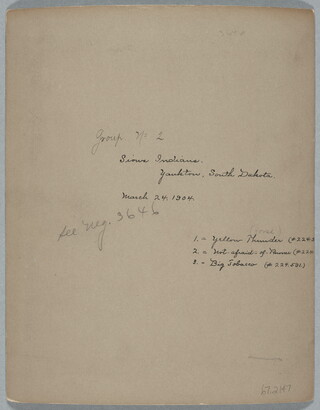 Group No 2
Sioux Indians.
Yankton, South Dakota
March 24. 1904.
See Neg. 3646
1. = Yellow Thunder
2. = Not afraid: of Pawnee
3. = Big Tobacco (# 224,531)
67.247